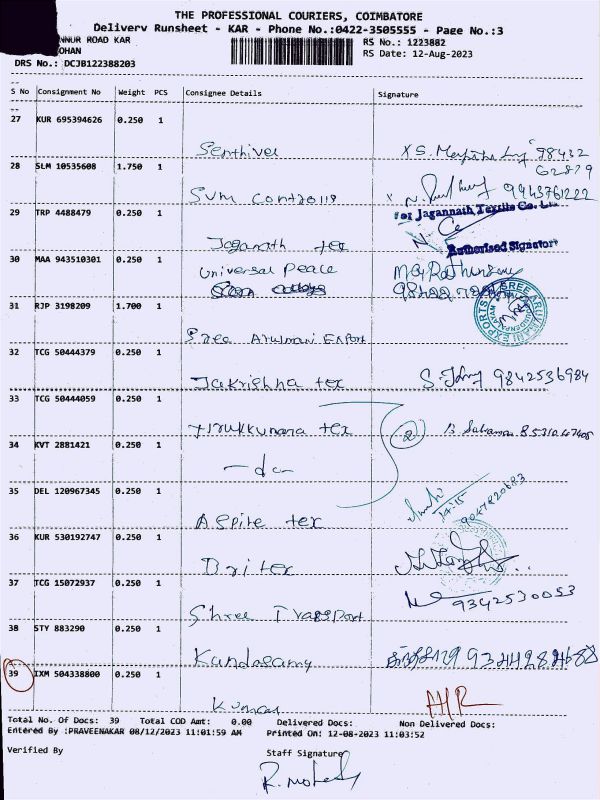 THE PROFESSIONAL COURIERS, COIMBATORE
Delivery Runsheet - KAR - Phone No.:0422-3505555 - Page No.:3
NNUR ROAD KAR
OHAN
RS No.: 1223882
RS Date: 12-Aug-2023
DRS No.: DCJB122388203
S No Consignment No Weight PCS Consignee Details Signature
27 KUR 695394626 0.250 1
Senthivel
28 SLM 10535608 1.750 1
SVM Controlls 9943761222
29 TRP 4488479 0.250 1
for Jagannath Textile Co. Ltd
Jaganath tex
Authorised Signatory
30 MAA 943510301 0.250 1
Universal Peace
31 RJP 3198209 1.700 1
SREE ARULMANI EXPORTS
Sree Arulmani Export
32 TCG 50444379 0.250 1
Jaikrishna tex 9842536984
33 TCG 50444059 0.250 1
Tirukkumara tex 2
34 KVT 2881421 0.250 1
-do-
35 DEL 120967345 0.250 1
Aspire tex 14:15 9047820683
36 KUR 530192747 0.250 1
Dritex
37 TCG 15072937 0.250 1
Shree Transport 9342530053
38 STY 883290 0.250 1
Kandasamy 9344282688
39 IXM 504338800 0.250 1
Kumar
Total No. Of Docs: 39 Total COD Amt: 0.00 Delivered Docs: Non Delivered Docs:
Entered By :PRAVEENAKAR 08/12/2023 11:01:59 AM Printed On: 12-08-2023 11:03:52
Verified By Staff Signature